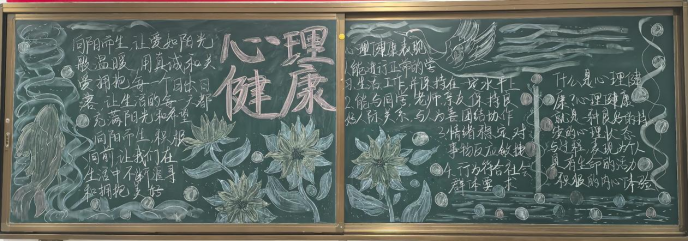 向阳而生 让爱如阳光
般温暖 用真诚和关
爱拥抱每一个日出日
落 让生活的每一天都
充满阳光和希望
向阳而生 积极
向前 让我们在
生活中不断追寻
和拥抱美好
心理
健康
心理健康表现
能进行正常的学
习生活工作并保持在一定水平上
2.能与同学老师亲友保持良
好人际关系 与人为善 团结协作
3.情绪稳定 对
事物反应敏捷
4.行为符合社会
群体要求
什么是心理健
康 心理健康
就是一种良好持
续的心理状态
与过程 表现为个人
具有生命的活力
积极的内心体验